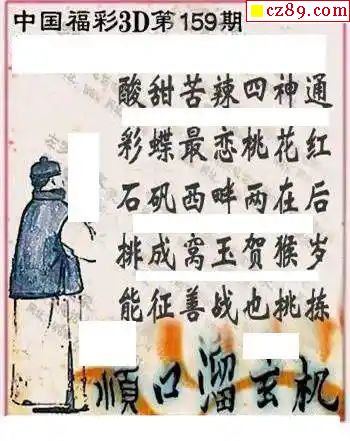 cz89.com
中国福彩3D第159期
酸甜苦辣四神通
彩蝶最恋桃花红
石矶西畔两在后
排成窝玉贺猴岁
能征善战也挑拣
顺口溜玄机